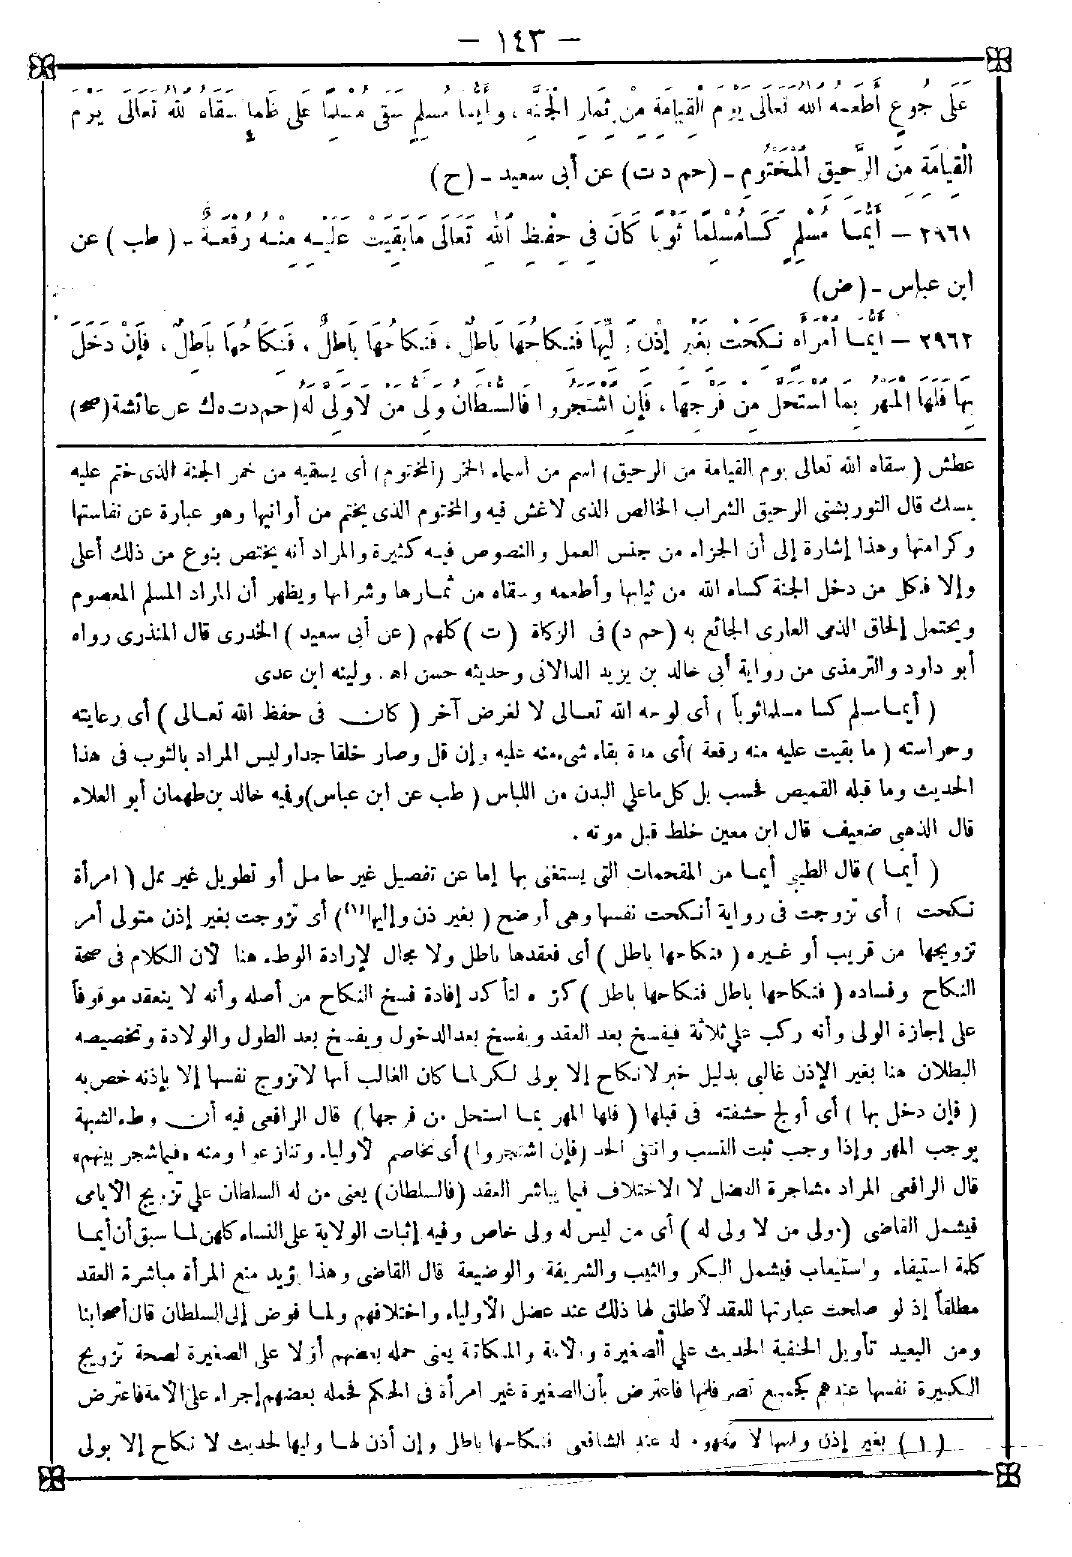 – ١٤٣ –
عَلَى جُوعٍ أَطْعَمَهُ اللهُ تَعَالَى يَوْمَ الْقِيَامَةِ مِنْ ثِمَارِ الْجَنَّةِ ، وَأَيُّمَا مُسْلِمٍ سَقَى مُسْلِمًا عَلَى ظَمَإٍ سَقَاهُ اللهُ تَعَالَى يَوْمَ
الْقِيَامَةِ مِنَ الرَّحِيقِ الْمَخْتُومِ – (حم د ت) عن أبى سعيد – (ح)
٢٩٦١ – أَيُّمَا مُسْلِمٍ كَسَا مُسْلِمًا ثَوْبًا كَانَ فِى حِفْظِ اللهِ تَعَالَى مَا بَقِيَتْ عَلَيْهِ مِنْهُ رُقْعَةٌ – ( طب ) عن
ابن عباس – (ض)
٢٩٦٢ – أَيُّمَا امْرَأَةٍ نَكَحَتْ بِغَيْرِ إِذْنِ وَلِيِّهَا فَنِكَاحُهَا بَاطِلٌ ، فَنِكَاحُهَا بَاطِلٌ ، فَنِكَاحُهَا بَاطِلٌ ، فَإِنْ دَخَلَ
بِهَا فَلَهَا الْمَهْرُ بِمَا اسْتَحَلَّ مِنْ فَرْجِهَا ، فَإِنِ اشْتَجَرُوا فَالسُّلْطَانُ وَلِىُّ مَنْ لَا وَلِىَّ لَهُ (حم د ت ه ك عن عائشة (صح)
عطش ( سقاه الله تعالى يوم القيامة من الرحيق) اسم من أسماء الخمر (المختوم) أى يسقيه من خمر الجنة الذى ختم عليه
بمسك قال التوربشتى الرحيق الشراب الخالص الذى لا غش فيه والمختوم الذى يختم من أوانيها وهو عبارة عن نفاستها
وكرامتها وهذا إشارة إلى أن الجزاء من جنس العمل والنصوص فيه كثيرة والمراد أنه يختص بنوع من ذلك أعلى
وإلا فكل من دخل الجنة كساه الله من ثيابها وأطعمه وسقاه من ثمارها وشرابها ويظهر أن المراد المسلم المعصوم
ويحتمل إلحاق الذمى العارى الجائع به (حم د) فى الزكاة (ت) كلهم (عن أبى سعيد) الخدرى قال المنذرى رواه
أبو داود والترمذى من رواية أبى خالد بن يزيد الدالانى وحديثه حسن اه. ولينه ابن عدى
( أيما مسلم كسا مسلما ثوباً ) أى لوجه الله تعالى لا لغرض آخر ( كان فى حفظ الله تعالى ) أى رعايته
وحراسته ( ما بقيت عليه منه رقعة ) أى مدة بقاء شىء منه عليه وإن قل وصار خلقا جدا وليس المراد بالثوب فى هذا
الحديث وما قبله القميص فحسب بل كل ما على البدن من اللباس ( طب عن ابن عباس) وفيه خالد بن طهمان أبو العلاء
قال الذهبى ضعيف قال ابن معين خلط قبل موته .
( أيما ) قال الطيبى أيما من المقحمات التى يستغنى بها إما عن تفصيل غير حاصل أو تطويل غير ممل ( امرأة
نكحت ) أى تزوجت فى رواية أنكحت نفسها وهى أوضح ( بغير إذن وليها(١)) أى تزوجت بغير إذن متولى أمر
تزويجها من قريب أو غيره ( فنكاحها باطل ) أى فعقدها باطل ولا مجال لإرادة الوطء هنا لأن الكلام فى صحة
النكاح وفساده ( فنكاحها باطل فنكاحها باطل ) كرره لتأكيد إفادة فسخ النكاح من أصله وأنه لا ينعقد موقوفاً
على إجازة الولى وأنه ركب على ثلاثة فيفسخ بعد العقد ويفسخ بعد الدخول ويفسخ بعد الطول والولادة وتخصيصه
البطلان هنا بغير الإذن غالبى بدليل خبر لا نكاح إلا بولى لكن لما كان الغالب أنها لا تزوج نفسها إلا بإذنه خص به
( فإن دخل بها ) أى أولج حشفته فى قبلها ( فلها المهر بما استحل من فرجها ) قال الرافعى فيه أن وطء الشبهة
يوجب المهر وإذا وجب ثبت النسب وانتفى الحد (فإن اشتجروا) أى تخاصم الأولياء وتنازعوا ومنه «فيما شجر بينهم»
قال الرافعى المراد مشاجرة العضل لا الاختلاف فيما يباشر العقد (فالسلطان) يعنى من له السلطان على تزويج الأيامى
فيشمل القاضى ( ولى من لا ولى له ) أى من ليس له ولى خاص وفيه إثبات الولاية على النساء كلهن لما سبق أن أيما
كلمة استيفاء واستيعاب فيشمل البكر والثيب والشريفة والوضيعة قال القاضى وهذا يؤيد منع المرأة مباشرة العقد
مطلقاً إذ لو صلحت عبارتها للعقد لأطلق لها ذلك عند عضل الأولياء واختلافهم ولما فوض إلى السلطان قال أصحابنا
ومن البعيد تأويل الحنفية الحديث على الصغيرة والأمة والمكاتبة يعنى حمله بعضهم أولا على الصغيرة لصحة تزويج
الكبيرة نفسها عندهم كجميع تصرفاتها فاعترض بأن الصغيرة غير امرأة فى الحكم فحمله بعضهم إجراء على الأمة فاعترض
(١) بغير إذن وليها لا مفهوم له عند الشافعى فنكاحها باطل وإن أذن لها وليها لحديث لا نكاح إلا بولى